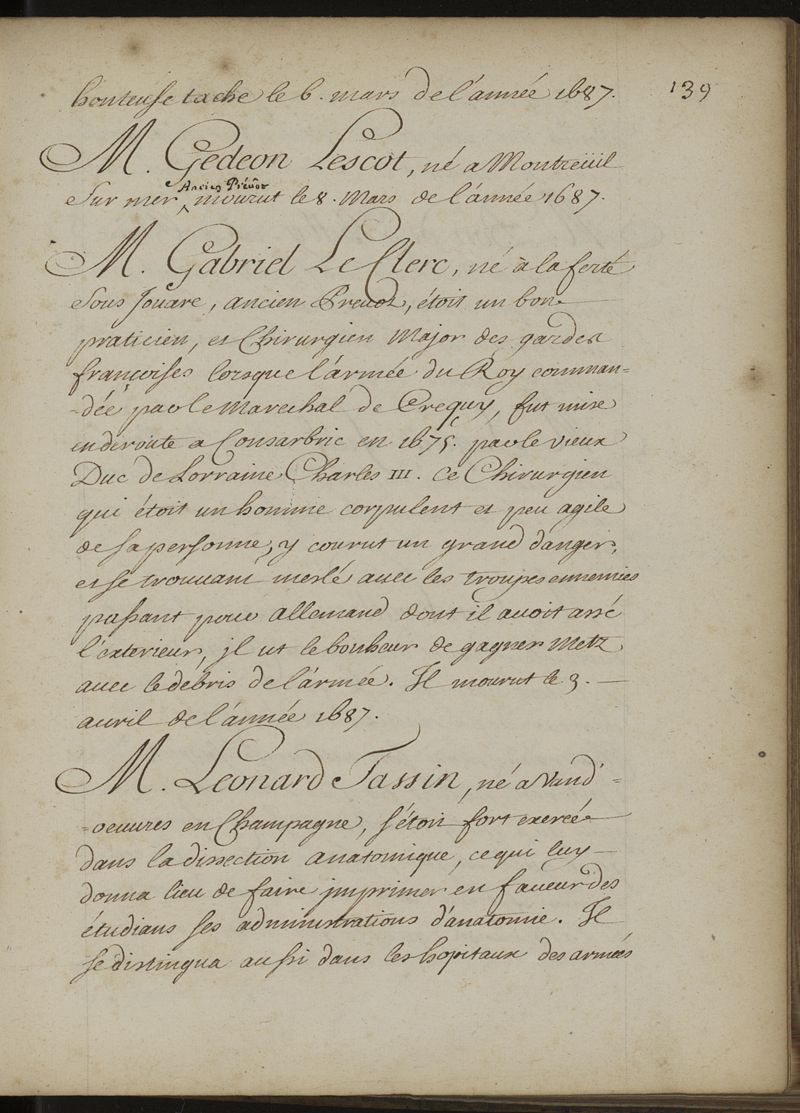 139
honteuse tache le 6. mars de l'année 1687.
M. Gedeon Lescot, né a Montreüil
Sur mer ^ Ancien Prévôt mourut le 8. Mars de l'année 1687.
M. Gabriel Le Clerc, né à la ferté
Sous Jouare, ancien Prevot, étoit un bon
praticien, et Chirurgien Major des gardes
françoises lorsque l'armée du Roy comman-
-dée par le Marechal de Crequy, fut mise
en deroute a Consarbric en 1675. par le vieux
Duc de Lorraine Charles III. Ce Chirurgien
qui étoit un homme corpulent et peu agile
de sa personne, y courut un grand danger,
et se trouvant meslé avec les troupes ennemies
passant pour allemand dont il avoit assé
l'exterieur, jl ut le bonheur de gagner Metz
avec le debris de l'armée. Il mourut le 3. —
avril de l'année 1687.
M. Leonard Tassin, né a Vand'-
-oeuvres en Champagne, s'étoit fort exercé
dans la dissection anatomique, ce qui luy
donna lieu de faire jmprimer en faveur des
étudians ses administrations d'anatomie. Il
se distingua aussi dans les hopitaux des armées